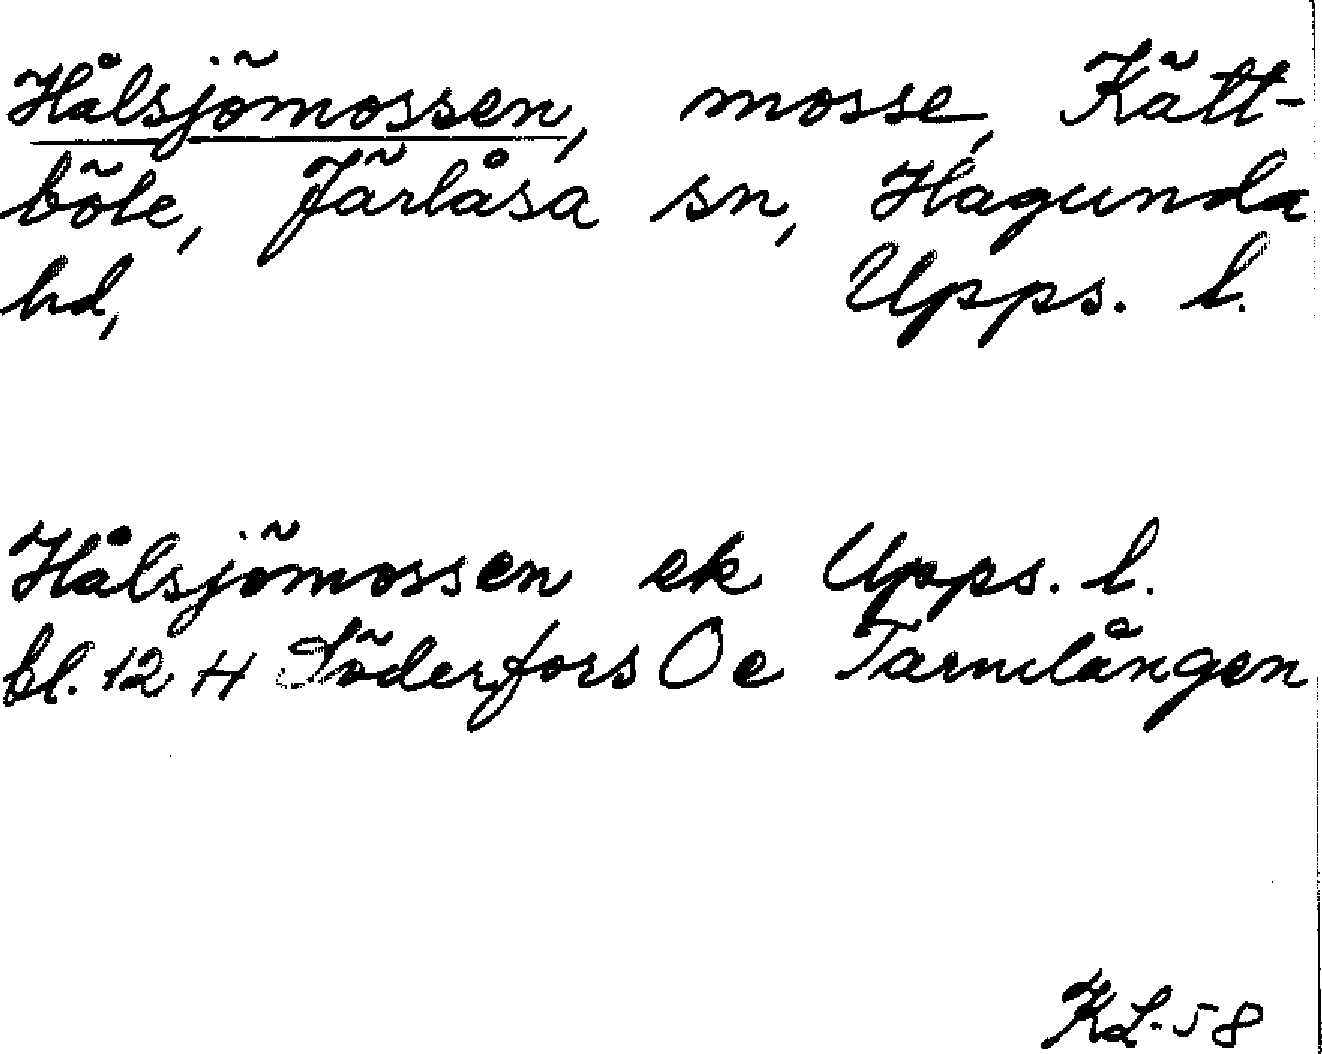 Hålsjömossen, mosse, Kätt-
böle, Järlåsa sn, Hagunda
hd, Upps. l.
Hålsjömossen ek Upps. l.
bl. 12 H Söderfors Oe Tarmlången
KL-58